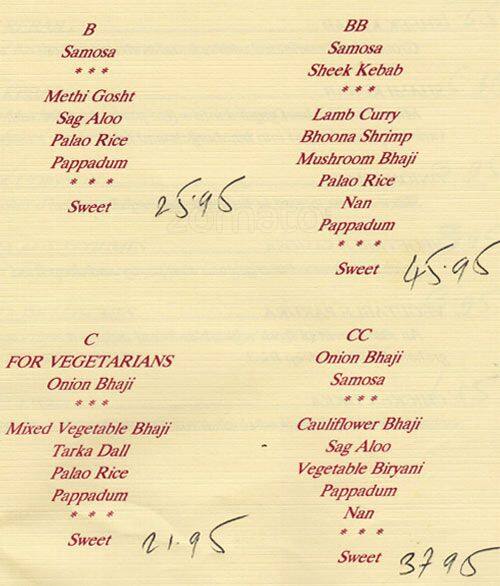 B
Samosa
* * *
Methi Gosht
Sag Aloo
Palao Rice
Pappadum
* * *
Sweet 25.95
BB
Samosa
Sheek Kebab
* * *
Lamb Curry
Bhoona Shrimp
Mushroom Bhaji
Palao Rice
Nan
Pappadum
* * *
Sweet 45.95
C
FOR VEGETARIANS
Onion Bhaji
* * *
Mixed Vegetable Bhaji
Tarka Dall
Palao Rice
Pappadum
* * *
Sweet 21.95
CC
Onion Bhaji
Samosa
* * *
Cauliflower Bhaji
Sag Aloo
Vegetable Biryani
Pappadum
Nan
* * *
Sweet 37 95